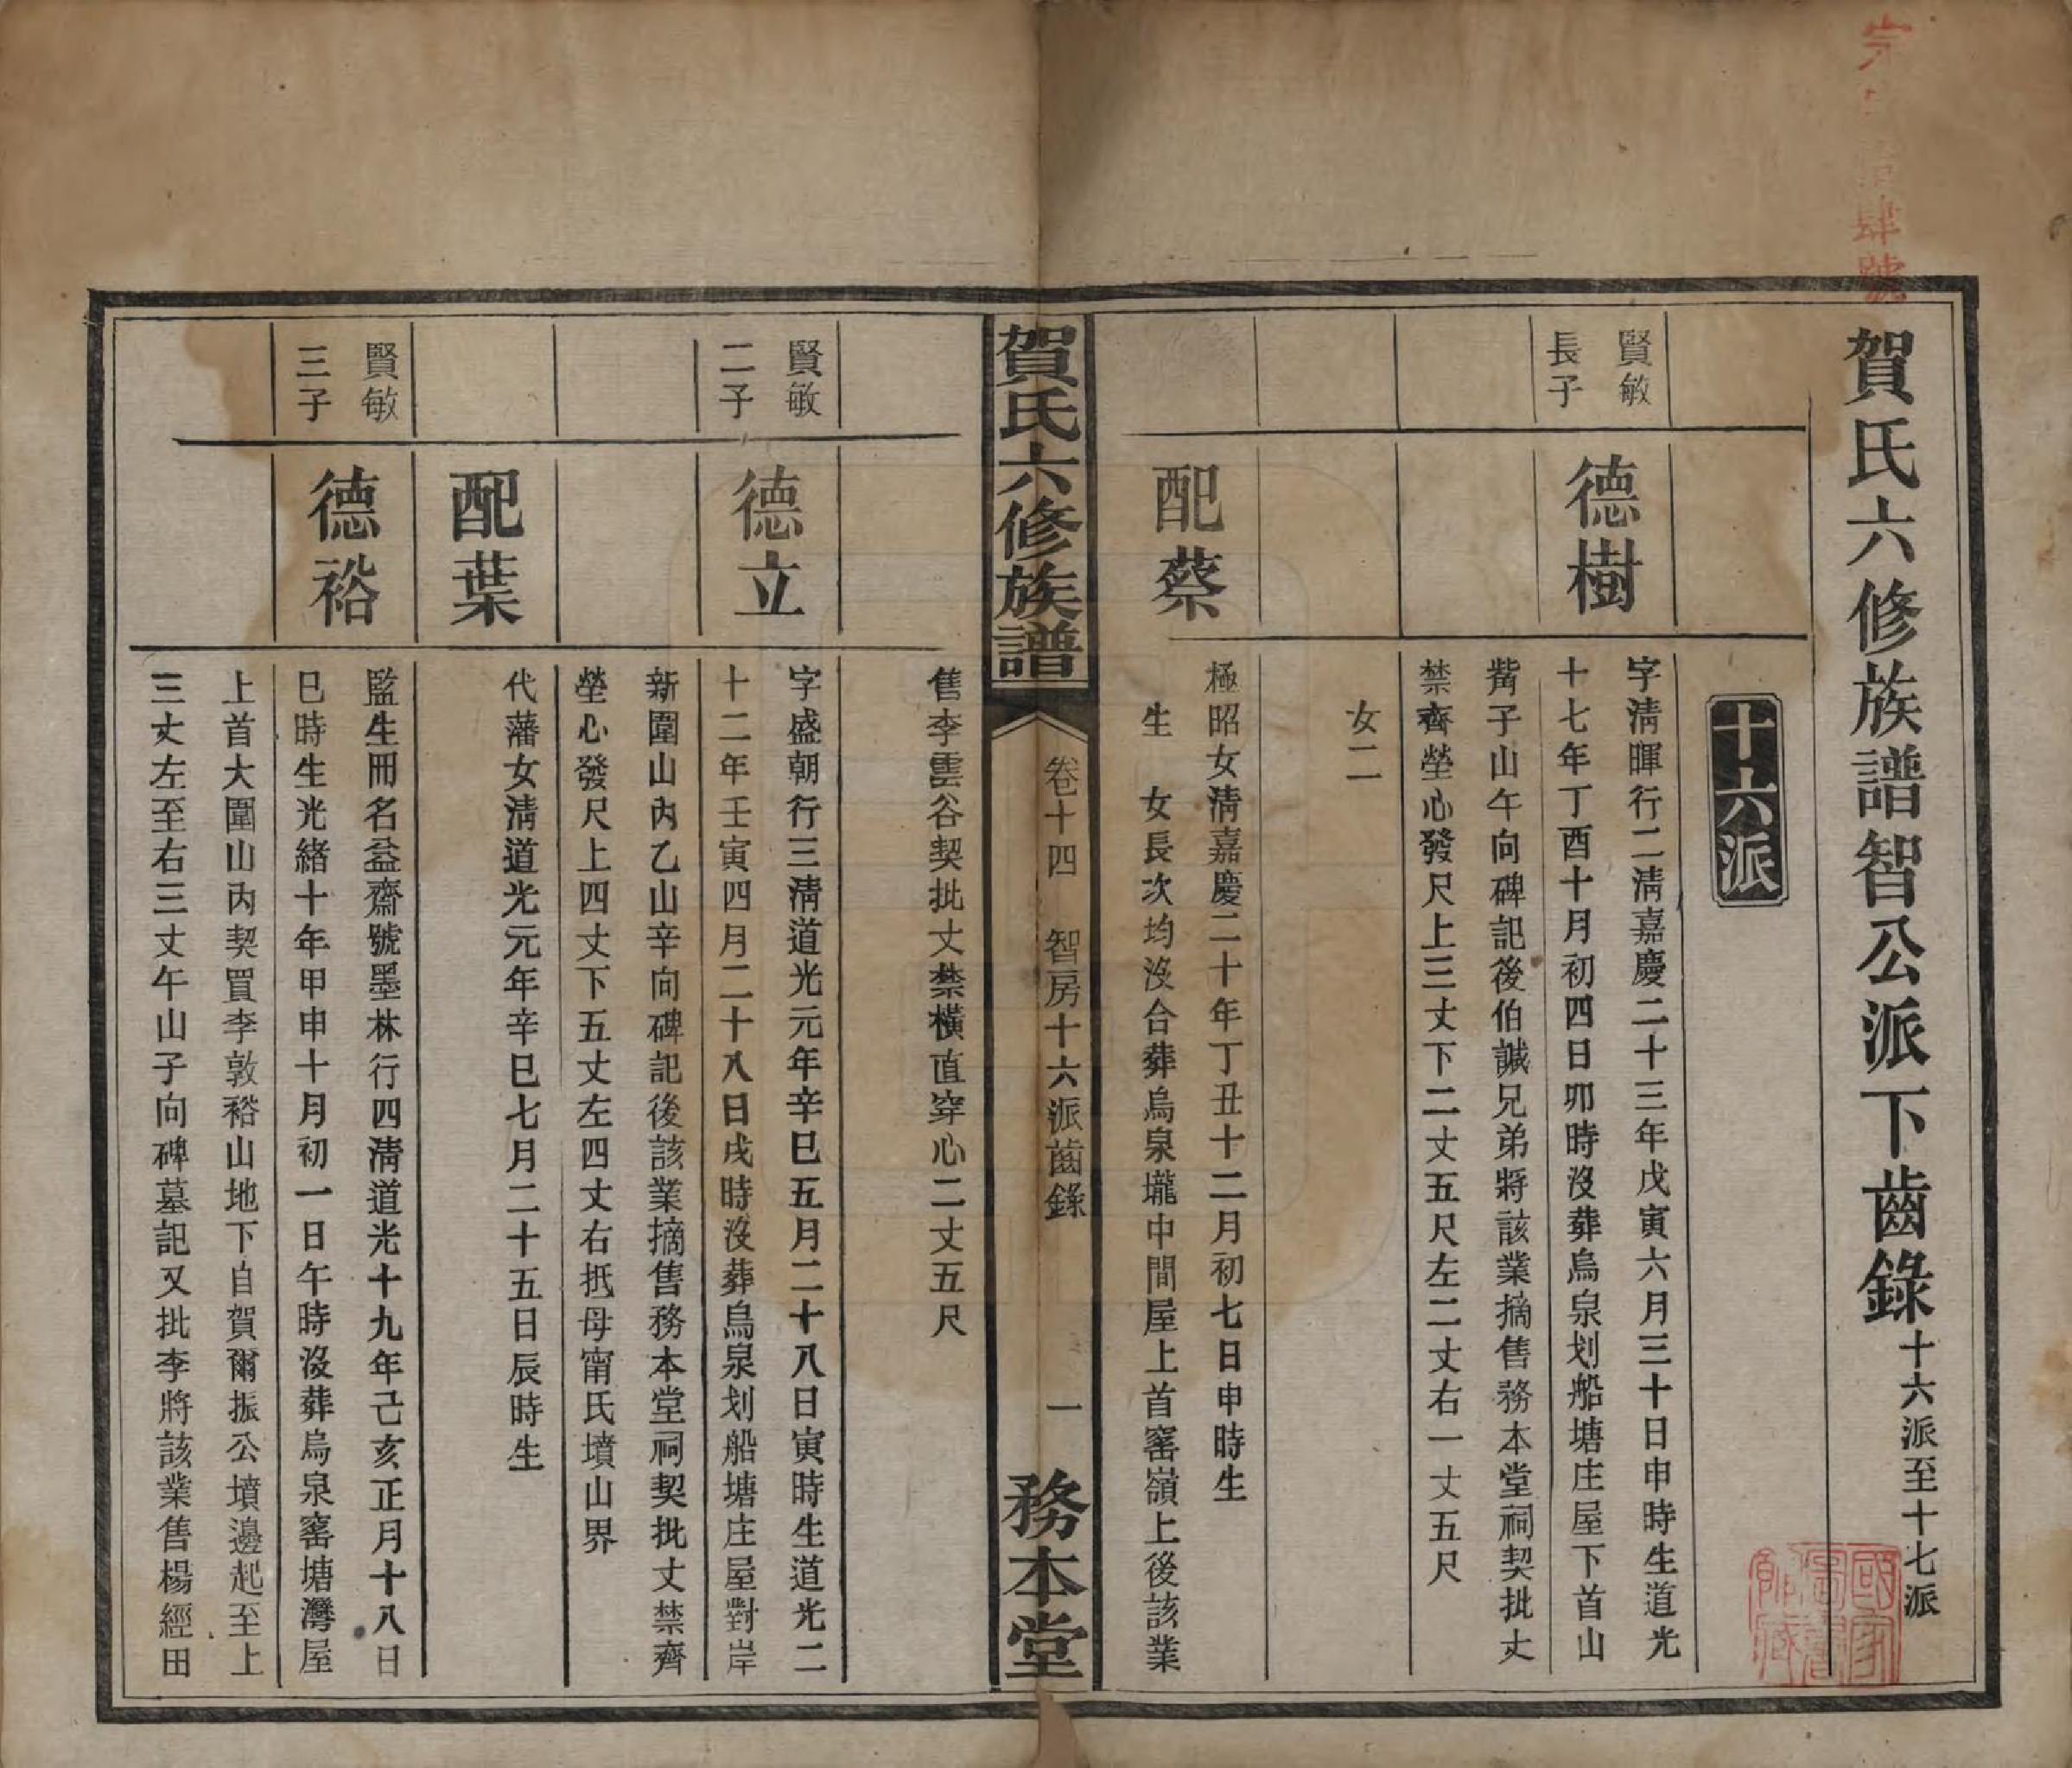 賀氏六修族譜智公派下齒錄十六派至十七派
十六派
賢敏
長子
德樹
字清暉行二清嘉慶二十三年戊寅六月三十日申時生道光
十七年丁酉十月初四日卯時沒葬烏泉划船塘庄屋下首山
觜子山午向碑記後伯諴兄弟將該業摘售務本堂祠契批丈
禁齊塋心發尺上三丈下二丈五尺左二丈右一丈五尺
女二
配蔡
極昭女清嘉慶二十年丁丑十二月初七日申時生
生 女長次均沒合葬烏泉壠中間屋上首窰嶺上後該業
賀氏六修族譜
卷十四 智房十六派齒錄
一
務本堂
售李雲谷契批丈禁橫直穿心二丈五尺
賢敏
二子
德立
字盛朝行三清道光元年辛巳五月二十八日寅時生道光二
十二年壬寅四月二十八日戌時沒葬烏泉划船塘庄屋對岸
新圍山內乙山辛向碑記後該業摘售務本堂祠契批丈禁齊
塋心發尺上四丈下五丈左四丈右抵母甯氏墳山界
配葉
代藩女清道光元年辛巳七月二十五日辰時生
賢敏
三子
德裕
監生冊名益齋號墨林行四清道光十九年己亥正月十八日
巳時生光緒十年甲申十月初一日午時沒葬烏泉窰塘灣屋
上首大圍山內契買李敦裕山地下自賀爾振公墳邊起至上
三丈左至右三丈午山子向碑墓記又批李將該業售楊經田
肆號
國家圖書館藏